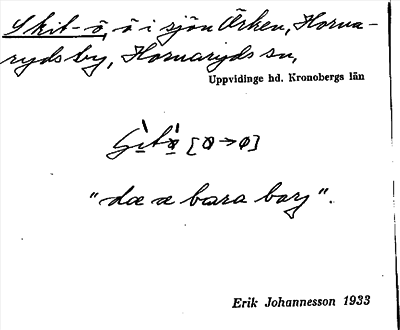 Skit-ö, ö i sjön Örken, Horna-
ryds by, Hornaryds sn,
Uppvidinge hd. Kronobergs län
"dæ æ bara barj".
Erik Johannesson 1933